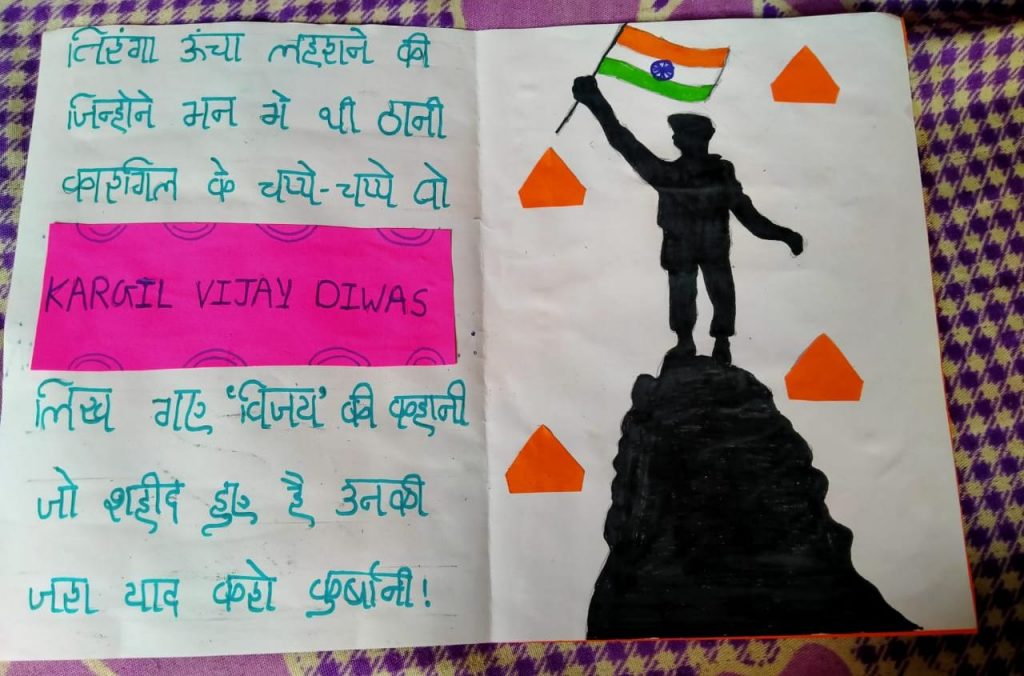 तिरंगा ऊंचा लहराने की
जिन्होने मन मे थी ठानी
कारगिल के चप्पे-चप्पे वो
KARGIL VIJAY DIWAS
लिख गए 'विजय' की कहानी
जो शहीद हुए है उनकी
जरा याद करो कुर्बानी!